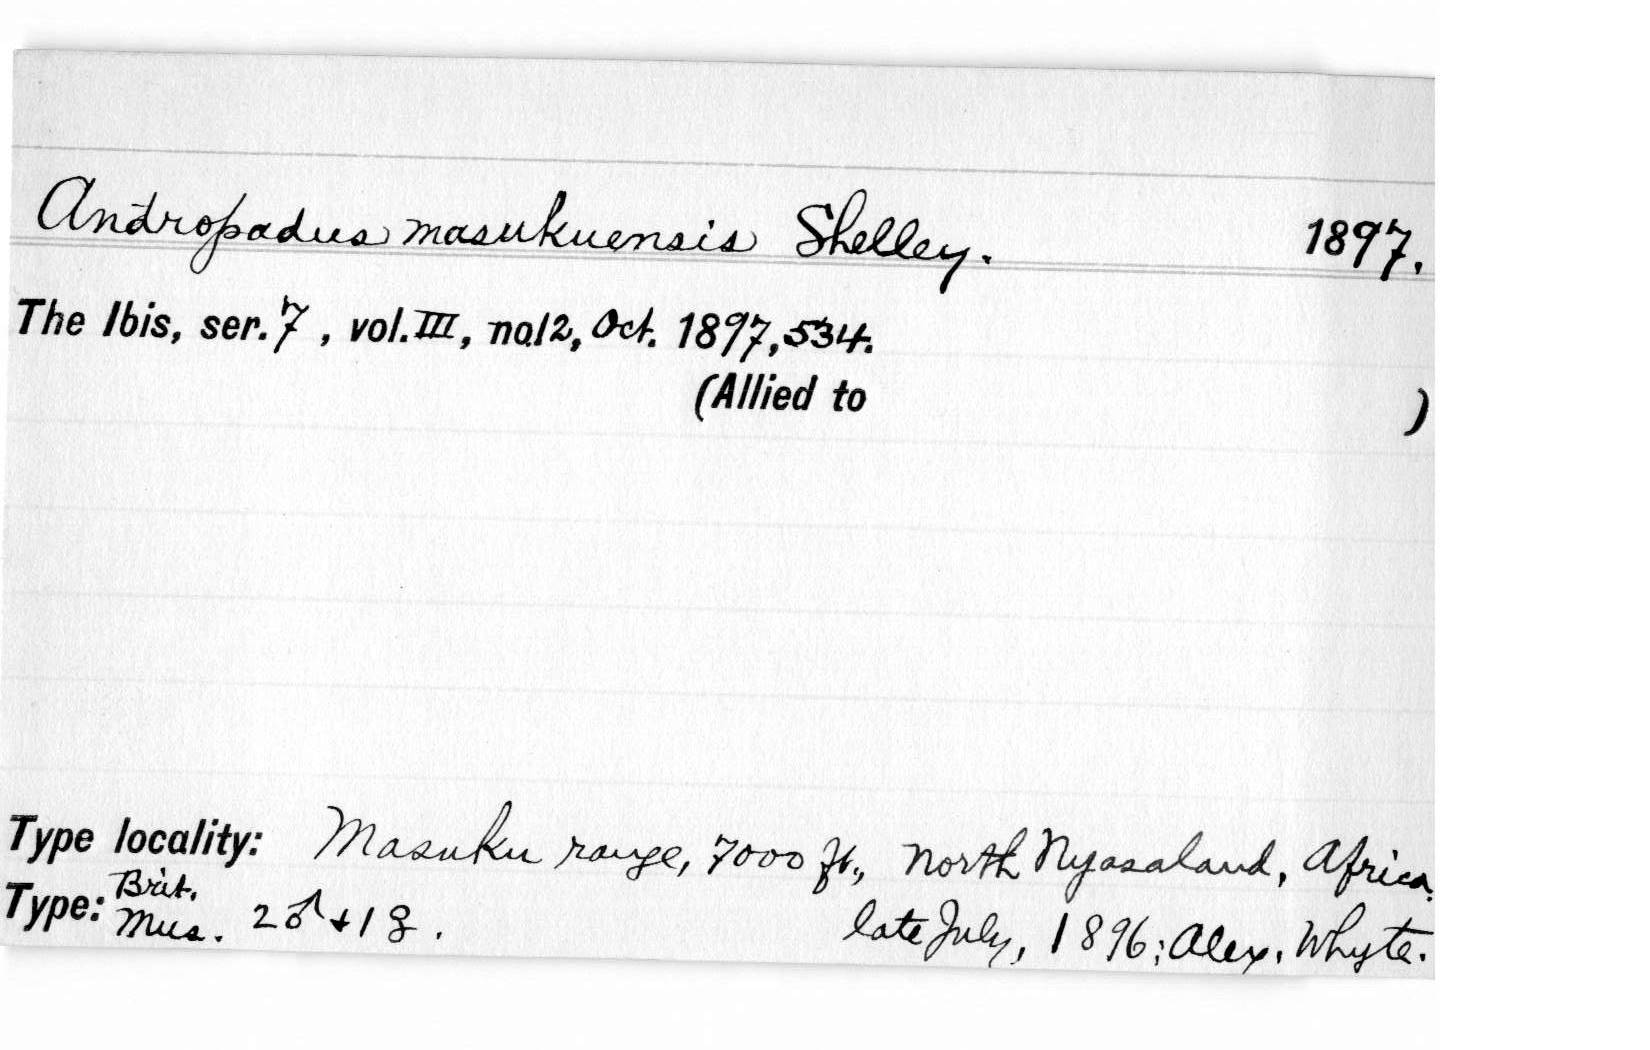 Andropadus masukuensis Shelley. 1897.
The Ibis, ser. 7, vol. III, no. 12, Oct. 1897, 534.
(Allied to )
Type locality: Masuku range, 7000 ft., North Nyasaland, Africa.
Type: Brit. Mus. 2♂+1♀. late July, 1896; Alex. Whyte.